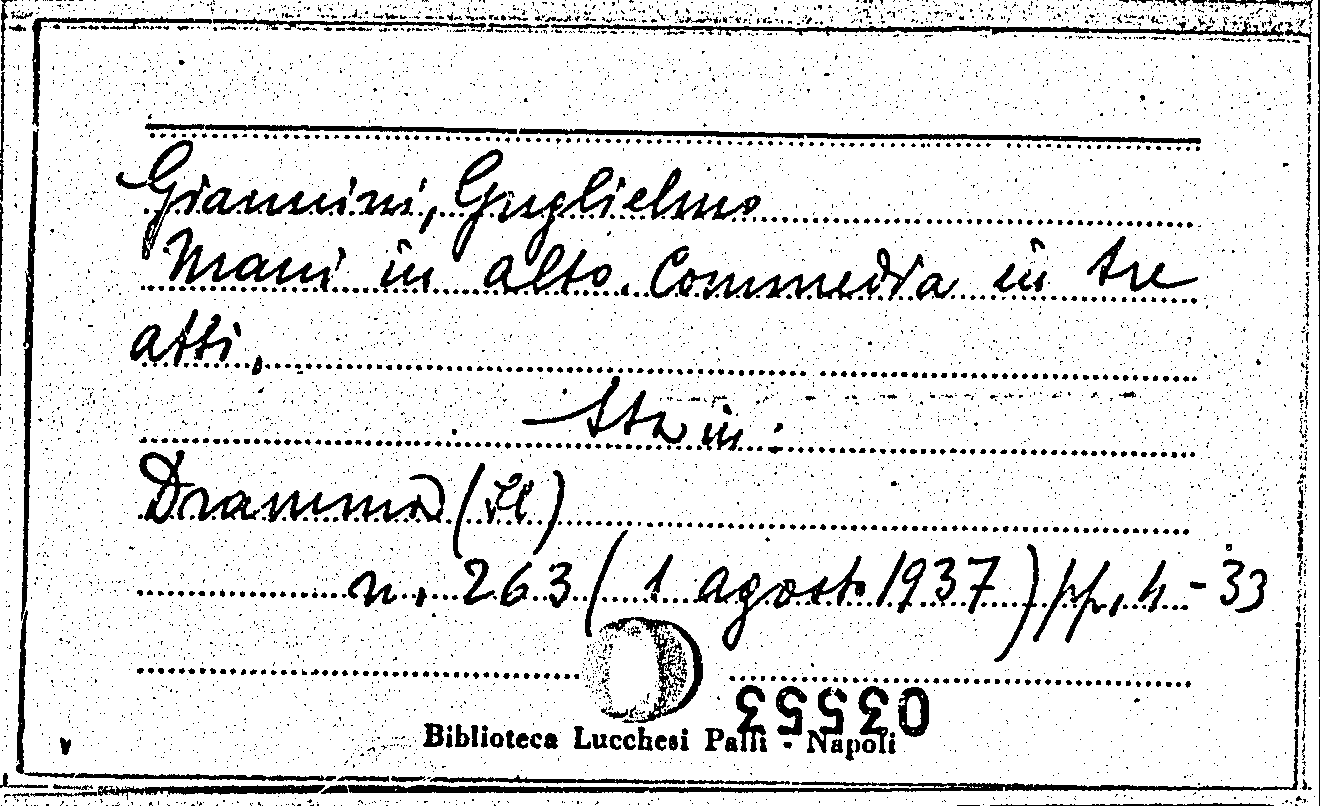 Giannini, Guglielmo
Mani in alto. Commedia in tre
atti.
Sta in:
Dramma (Il)
n. 263 (1 agosto 1937) pp. 4-33
03553
Biblioteca Lucchesi Palli - Napoli